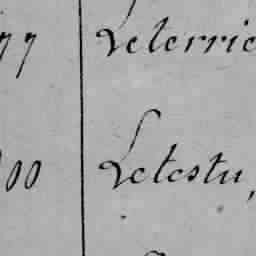 77 Leterrie
00 Letestu,